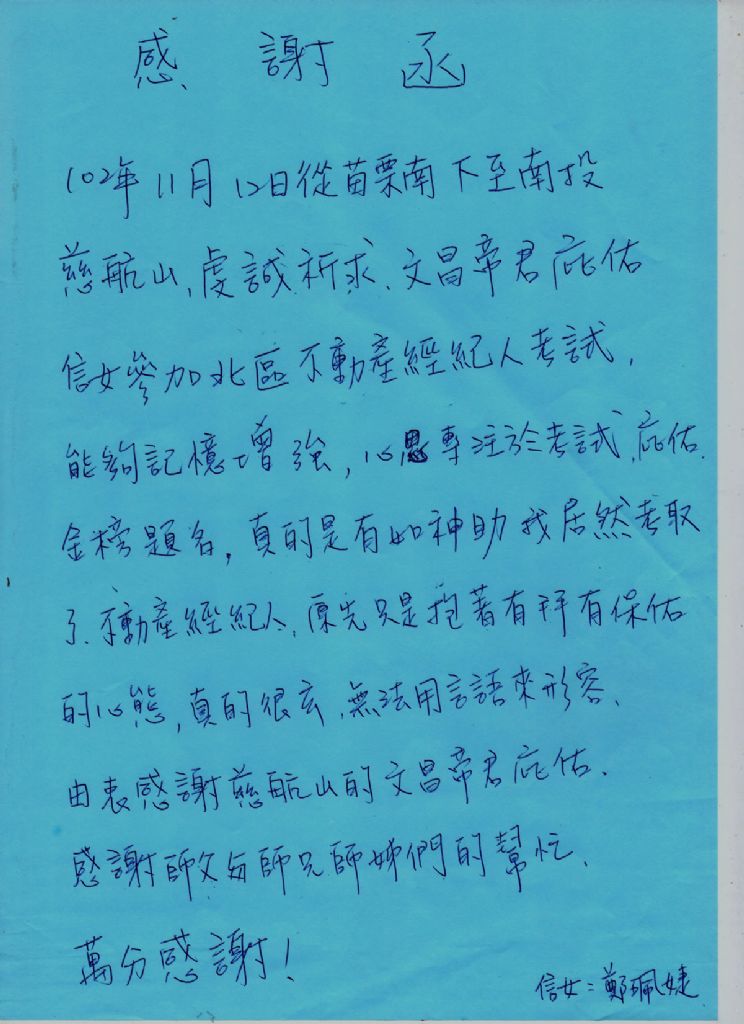 感謝函
102年11月12日從苗栗南下至南投
慈航山、虔誠祈求、文昌帝君庇佑
信女參加北區不動產經紀人考試,
能夠記憶增強,心思專注於考試、庇佑、
金榜題名,真的是有如神助我居然考取
了、不動產經紀人、原先只是抱著有拜有保佑
的心態,真的很玄、無法用言語來形容、
由衷感謝慈航山的文昌帝君庇佑、
感謝師父與師兄師姊們的幫忙、
萬分感謝!
信女:鄭珮婕